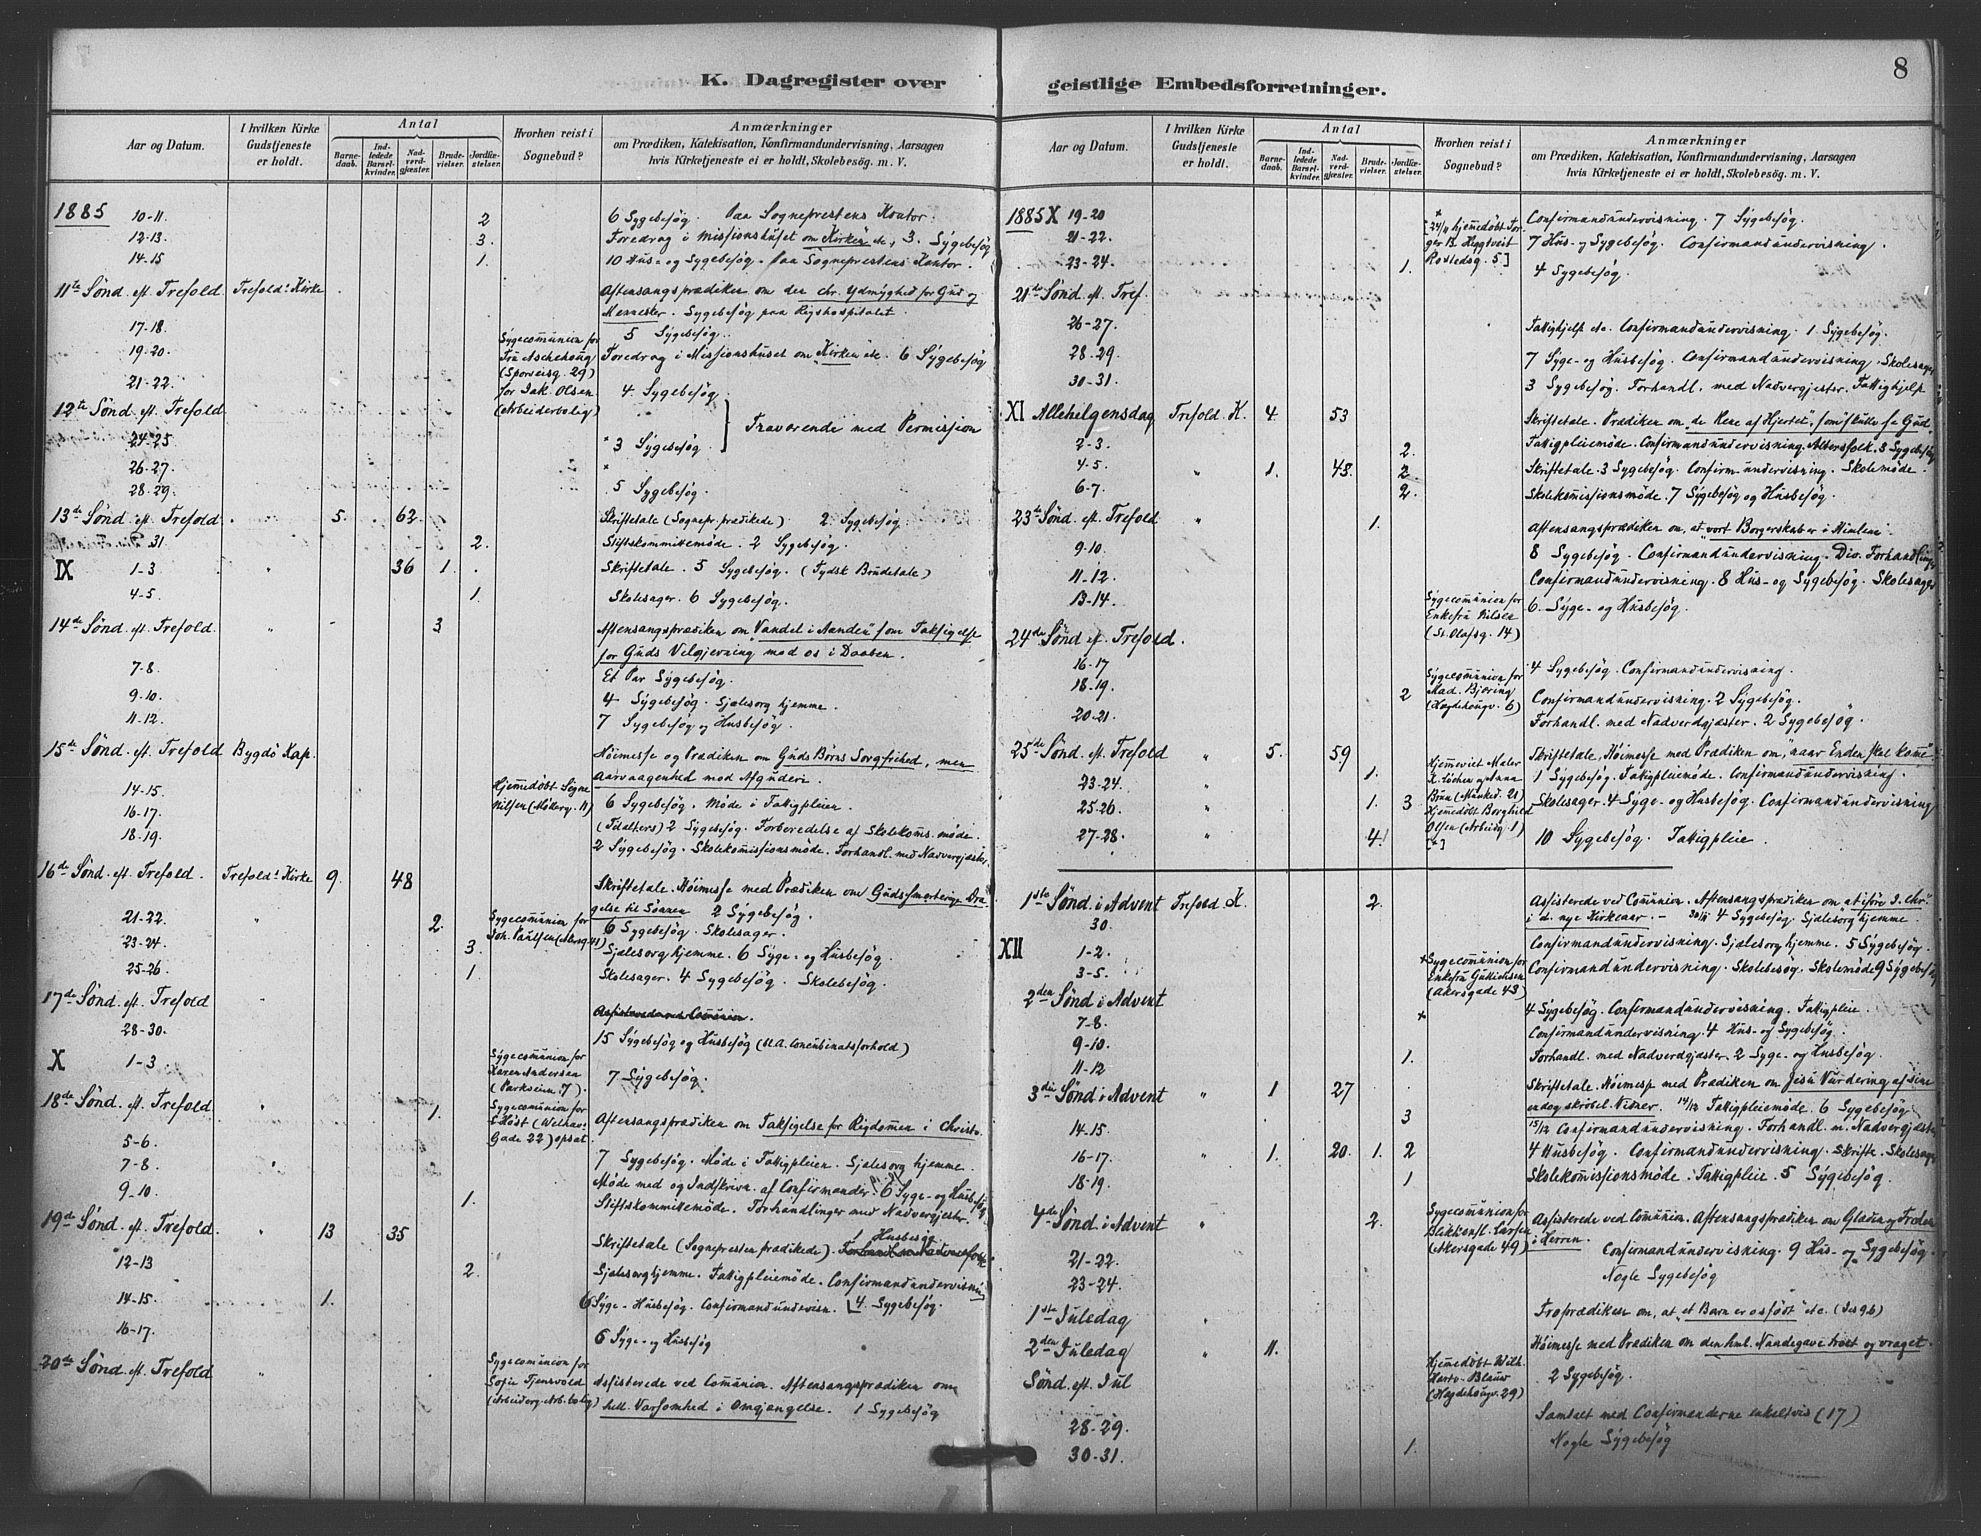 8
K. Dagregister over geistlige Embedsforretninger.
Aar og Datum.
I hvilken Kirke Gudstjeneste er holdt.
Antal
Barnedaab.
Indledede Barselkvinder.
Nadverdgjæster.
Brudevielser.
Jordfæstelser.
Hvorhen reist i Sognebud?
Anmærkninger
om Prædiken, Katekisation, Konfirmandundervisning, Aarsagen
hvis Kirketjeneste ei er holdt, Skolebesög. m. V.
1885 10-11. 2 6 Sygebesög. Paa Sogneprestens Kontor.
12-13. 3. Foredrag i Missionshuset om Kirken etc, 3. Sygebesög
14-15 1. 10 Hus- og Sygebesög. Paa Sogneprestens Kontor.
11te Sönd. eft. Trefold. Trefold.s Kirke Aftensangsprædiken om den chr. Ydmyghed for Gud og
Mennesker. Sygebesög paa Rigshospitalet.
17-18. Sygecomunion for 5 Sygebesög.
19-20. Fru Aschehoug Foredrag i Missionshuset om Kirken etc. 6 Sygebesög
(Sporveisg. 29)
21-22. for Jak. Olsen 4 Sygebesög
12te Sönd. eft. Trefold. (Arbeiderbolig)
Fraværende med Permission
24-25 3 Sygebesög.
26-27.
28-29. 5 Sygebesög.
13de Sönd. eft. Trefold. 5. 62. Skriftetale (Sognepr. prædikede) 2 Sygebesög.
31 2. Stiftskommittemöde. 2 Sygebesög.
IX 1-3 36 1. Skriftetale. 5 Sygebesög. (Tydsk Brudetale)
4-5. 1. Skolesager. 6 Sygebesög.
14de Sönd. eft. Trefold. 3. Aftensangsprædiken om Vandel i Aanden som Taksigelse
for Guds Velgjerning mod os i Daaben.
7-8. Et Par Sygebesög.
9-10. 4 Sygebesög. Sjælesorg hjemme.
11-12. 7 Sygebesög og Husbesög.
15de Sönd. eft. Trefold Bygdö Kap. Höimesse og Prædiken om Guds Börns Sorgfrihed, men
Aarvaagenhed mod Afguderi.
14-15. Hjemmedöbt Signe 6 Sygebesög. Möde i Fattigpleien.
16-17. Nilsen (Möllerg. 11) 2 Sygebesög. Forberedelse af Skolekoms. möde.
18-19. 2 Sygebesög. Skolekomissionsmöde. Forhandl. med Nadvergjæster.
16de Sönd. eft. Trefold. Trefold.s Kirke 9. 48 Skriftetale. Höimesse med Prædiken om Guds smertelige Dra-
gelse til Sönnen 2 Sygebesög.
21-22. 2. Sygecomunion for 6 Sygebesög. Skolesager.
23-24. 3. Sjælesorg hjemme. 6 Syge- og Husbesög.
25-26. 1. Skolesager. 4 Sygebesög. Skolebesög.
17de Sönd. eft. Trefold Assisterede ved Comunion.
28-30. 15 Sygebesög og Husbesög (bl.A. Concubinatsforhold)
X 1-3. Sygecomunion for Karen Andersen (Parkveien 7). 7 Sygebesög.
18de Sönd. eft. Trefold 1. Sygecomunion for Höst (Welhav. Gade 22) opsat. Aftensangsprædiken om Taksigelse for Rigdommen i Christo.
5-6.
7-8. 7 Sygebesög. Möde i Fattigpleien. Sjælesorg hjemme.
9-10. 1. Möde med og Indskrivn. af Confirmander. 6 Syge- og Husbesög
Stiftskommittemöde. Forhandlinger med Nadvergjæster.
19de Sönd. eft. Trefold. 13 35 1 Husbesög
Skriftetale (Sognepresten prædikede).
12-13 2. Sjælesorg hjemme. Fattigpleiemöde. Confirmandundervisning
14-15. 1. 6 Syge- Husbesög. Confirmandundervisn. 4. Sygebesög.
16-17. 6 Syge- og Husbesög
20de Sönd. eft. Trefold Sygecomunion for Sofie Assisterede ved Comunion. Aftensangsprædiken om
hell. Varsomhed i Omgjængelse. 1 Sygebesög
Aar og Datum.
I hvilken Kirke Gudstjeneste er holdt.
Antal
Barnedaab.
Indledede Barselkvinder.
Nadverdgjæster.
Brudevielser.
Jordfæstelser.
Hvorhen reist i Sognebud?
Anmærkninger
om Prædiken, Katekisation, Konfirmandundervisning, Aarsagen
hvis Kirketjeneste ei er holdt, Skolebesög. m. V.
1885 X 19-20 Confirmandundervisning. 7 Sygebesög.
21-22. 7 Hus- og Sygebesög. Confirmandundervisning.
23-24. 1. Rostedsg. 5] 4 Sygebesög.
21de Sönd. eft. Tref.
26-27. Fattighjelp etc. Confirmandundervisning. 1 Sygebesög.
28-29. 7 Syge- og Husbesög. Confirmandundervisning. Skolesager
30-31. 3 Sygebesög. Forhandl. med Nadvergjester. Fattighjelp
XI Allehelgensdag Trefold. K. 4. 53 Skriftetale. Prædiken om "de Rene af Hjertet", som skulle se Gud.
2-3. 2. Fattigpleiemöde. Confirmandundervisning. 3 Sygebesög
4-5. 1. 48. 2 Skriftetale. 3 Sygebesög. Confirm. undervisning. Skolemöde.
6-7. 2. Skolekomissionsmöde. 7 Sygebesög og Husbesög.
23de Sönd. eft. Trefold " 1. Aftensangsprædiken om, at vort Borgerskab er i Himlene.
9-10. 8 Sygebesög. Confirmandundervisning. Div. Forhandlinger
11-12. Confirmandundervisning. 8 Hus- og Sygebesög. Skolesager
13-14. Sygecomunion for Enkefru Nilsen (St. Olafsg. 14) 6 Syge- og Husbesög.
24de Sönd. ef. Trefold.
16-17 4 Sygebesög. Confirmandundervisning.
18-19. 2 Sygecomunion for Mad. Björing (Hægdehougv. 6) Confirmandundervisning. 2 Sygebesög.
20-21. Forhandl. med Nadverdgjæster. 2 Sygebesög.
25de Sönd. eft. Trefold " 5. 59. Skriftetale. Höimesse med Prædiken om, naar Enden skal komme
23-24. " 1. 1 Sygebesög. Fattigpleiemöde. Confirmandundervisning.
25-26. " 1. 3 Hjemmedöbt Borghild Skolesager. 4 Syge- og Husbesög. Confirmandundervisning
27-28. " 4. Olsen (Arbeidg. 1) 10 Sygebesög. Fattigpleie.
1ste Sönd. i Advent Trefold. K. 2. Assisterede ved Comunion. Aftensangsprædiken om at iföre J. Chr.
30. i d. nye Kirkeaar. - 30/11 4 Sygebesög. Sjælesorg hjemme.
XII 1-2. Confirmandundervisning. Sjælesorg hjemme. 5 Sygebesög.
3-5. Sygecomunion for Enkefru (Akersgade 43) Confirmandundervisning. Skolebesög. Skolemöde 9 Sygebesög
2den Sönd. i Advent
7-8. 4 Sygebesög. Confirmandundervisning. Fattigpleie.
9-10. Confirmandundervisning. 4 Hus- og Sygebesög.
11-12 1. Forhandl. med Nadverdgjæster. 2 Syge- og Husbesög.
3die Sönd. i Advent " 1 27 Skriftetale. Höimesse med Prædiken om Jesu Vurdering af sine
endog skröbel. Vidner. 14/12 Fattigpleiemöde. 6 Sygebesög.
14-15. 3 15/12 Confirmandundervisning. Forhandl. m. Nadvergjæster
16-17. " 1. 20. 1. 2 4 Husbesög. Confirmandundervisning. Skrifte. Skolesager
18-19. 1 Skolekomissionsmöde. Fattigpleie. 5 Sygebesög.
4de Sönd. i Advent " 2. Sygecomunion for Blikkensl. Larsen (Akersgade 49) Assisterede ved Comunion. Aftensangsprædiken om Glæden og Freden
i Herren.
21-22. Confirmandundervisning. 9 Hus- og Sygebesög.
23-24. Nogle Sygebesög
1ste Juledag " Froprædiken om, at "et Barn er os födt" etc. (Jes 9.6)
2den Juledag " 11. Höimesse med Prædiken om den hml. Naadegave tröst og vraget.
Sönd. eft. Jul Hjemmedöbt Wilh. (Hægdehougv. 29) 2 Sygebesög.
28-29. Samtalt med Confirmanderne enkeltvis (17)
30-31. 1. Nogle Sygebesög